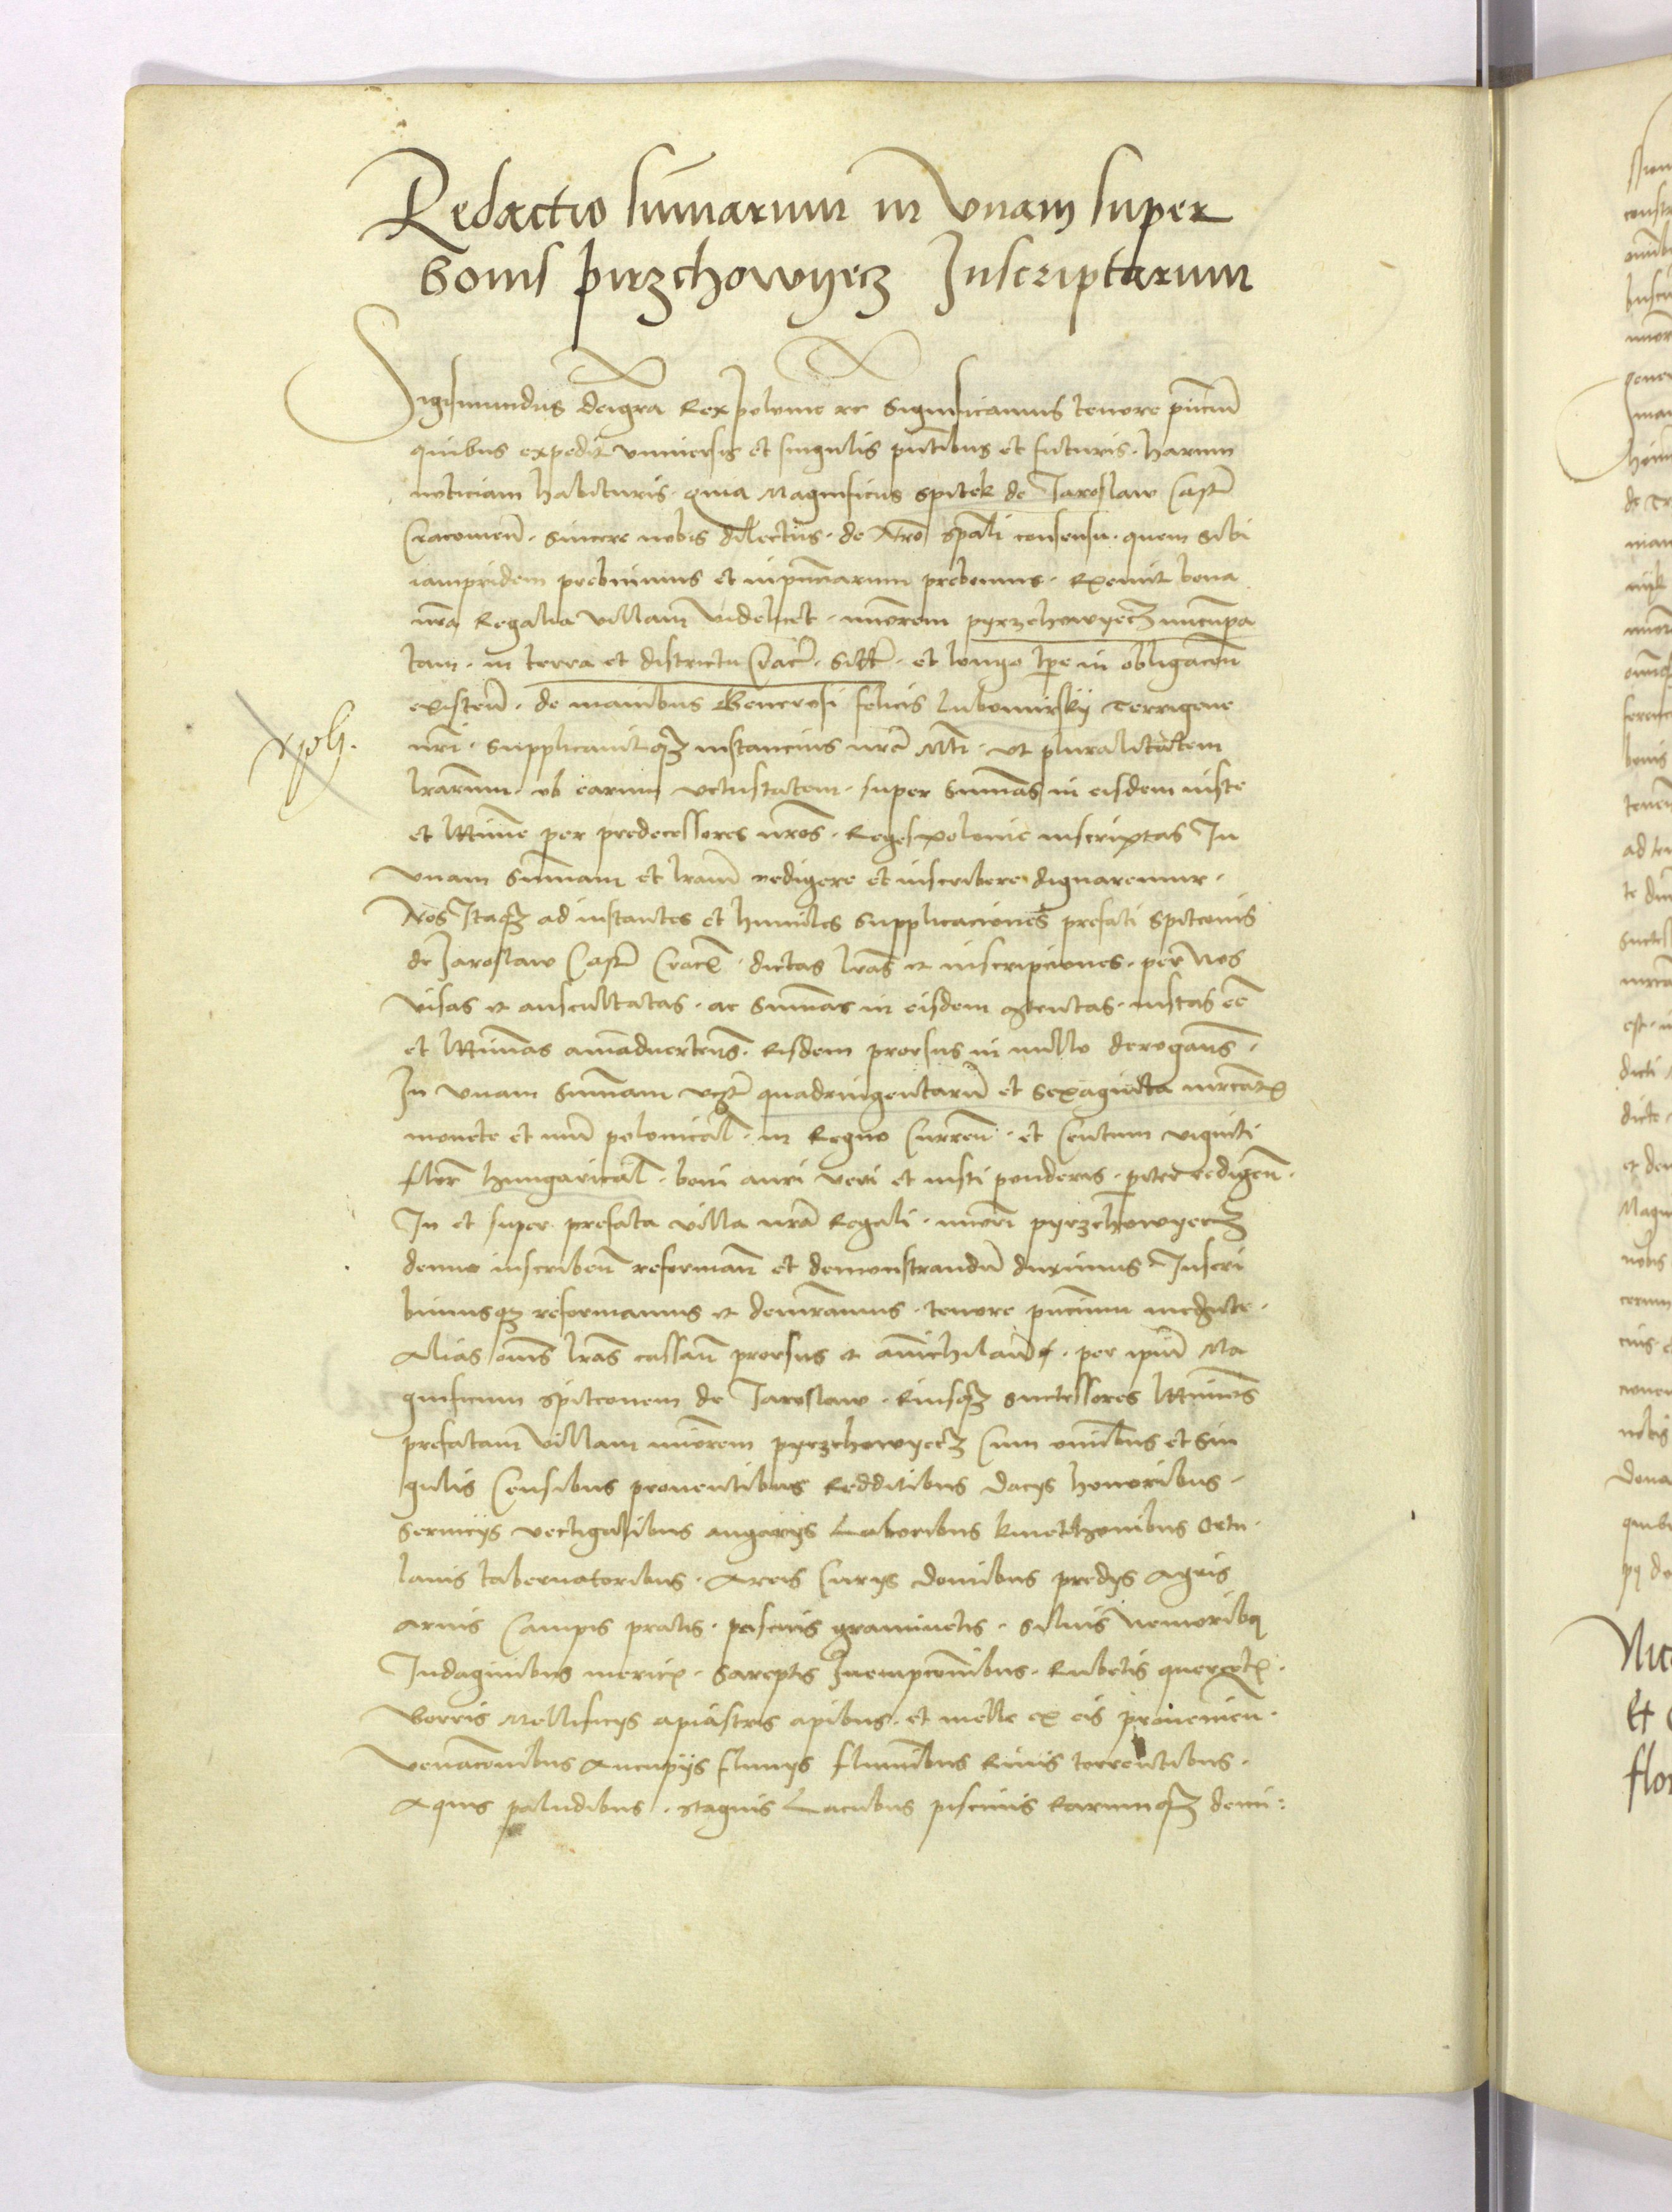 Redactio sum̄arum in Vnam super
bonis pirzchowyecz Inscriptarum
Sigismundus dei gra Rex polonie rc Significamus tenore pn̄cium
quibus expedit vniuersis et singulis pn̄tibus et futuris. harum
noticiam habituris. quia Magnificus Spitek de Jaroslaw Castn̄
Cracouien̄. sincere nobis dilectus. de Nrō spāli consensu. quem sibi
iampridem prebuimus et in pn̄ciarum prebemus. Exemit bona
nrā Regalia villam videlicet. minorem pyrzchowyecz nuncupa
tam. in terra et districtu Crac̄. sitt̄. et longo tp̄e in obligacōn̄
existen̄. de manibus Generosi felicis Lubomirskij Terrigene
nrī. Supplicauitqz instancius nrē Mt̄i. vt pluralitatem
lrārum. ob earum vetustatem. super Sum̄as in eisdem iuste
et ltt̄ime per predecessores nrōs. Reges polonie inscriptas In
vnam Sum̄am et lrām redigere et inscribere dignaremur.
Nos Itaqz ad instantes et humiles supplicaciones prefati Spitconis
de Jaroslaw Castn̄ Crac̄. dictas lrās et inscripciones. per Nos
visas et auscultatas. ac Sum̄as in eisdem 9tentas. iustas eē
et ltt̄imas animaduerten̄. Eisdem prorsus in nullo derogan̄.
In vnam Sum̄am vcz quadringentarū et sexaginta mrcarū
monete et nūi polonical̄. in Regno Curren̄. et Centum viginti
flor̄ hungarical̄. boni auri veri et iusti ponderis. pariter redigen̄.
In et super prefata villa nrā Regali. minori pyrzchowyecz
denuo inscriben̄ reforman̄ et demonstrandū duximus Inscri
bimusqz reformamus et demrāmus. tenore pn̄cium mediante.
Alias om̄es lrās cassan̄ prorsus et annichilan̄. per ipm̄ Ma
gnificum Spitconem de Jaroslaw. Eiusqz Successores ltt̄imos
prefatam villam minorem pyrzchowyecz Cum omībus et sin
gulis Censibus prouentibus Redditibus dacijs honoribus.
Seruicijs vectigalibus angarijs Laboribus kmethonibus Ortu
lanis tabernatoribus. Areis Curijs domibus predijs Agris
Aruis Campis pratis. pascuis graminetis. Siluis Nemoribq
Indaginibus mericis. Gareptis Inempcōnibus. Rubetis quercetis.
Borris Mellificijs apiastris apibus. et melle ex eis prouenien̄.
Venacōnibus Aucupijs fluuijs fluminibus Riuis torrentibus.
Aquis paludibus. Stagnis Lacubus piscinis Earumqz demi: